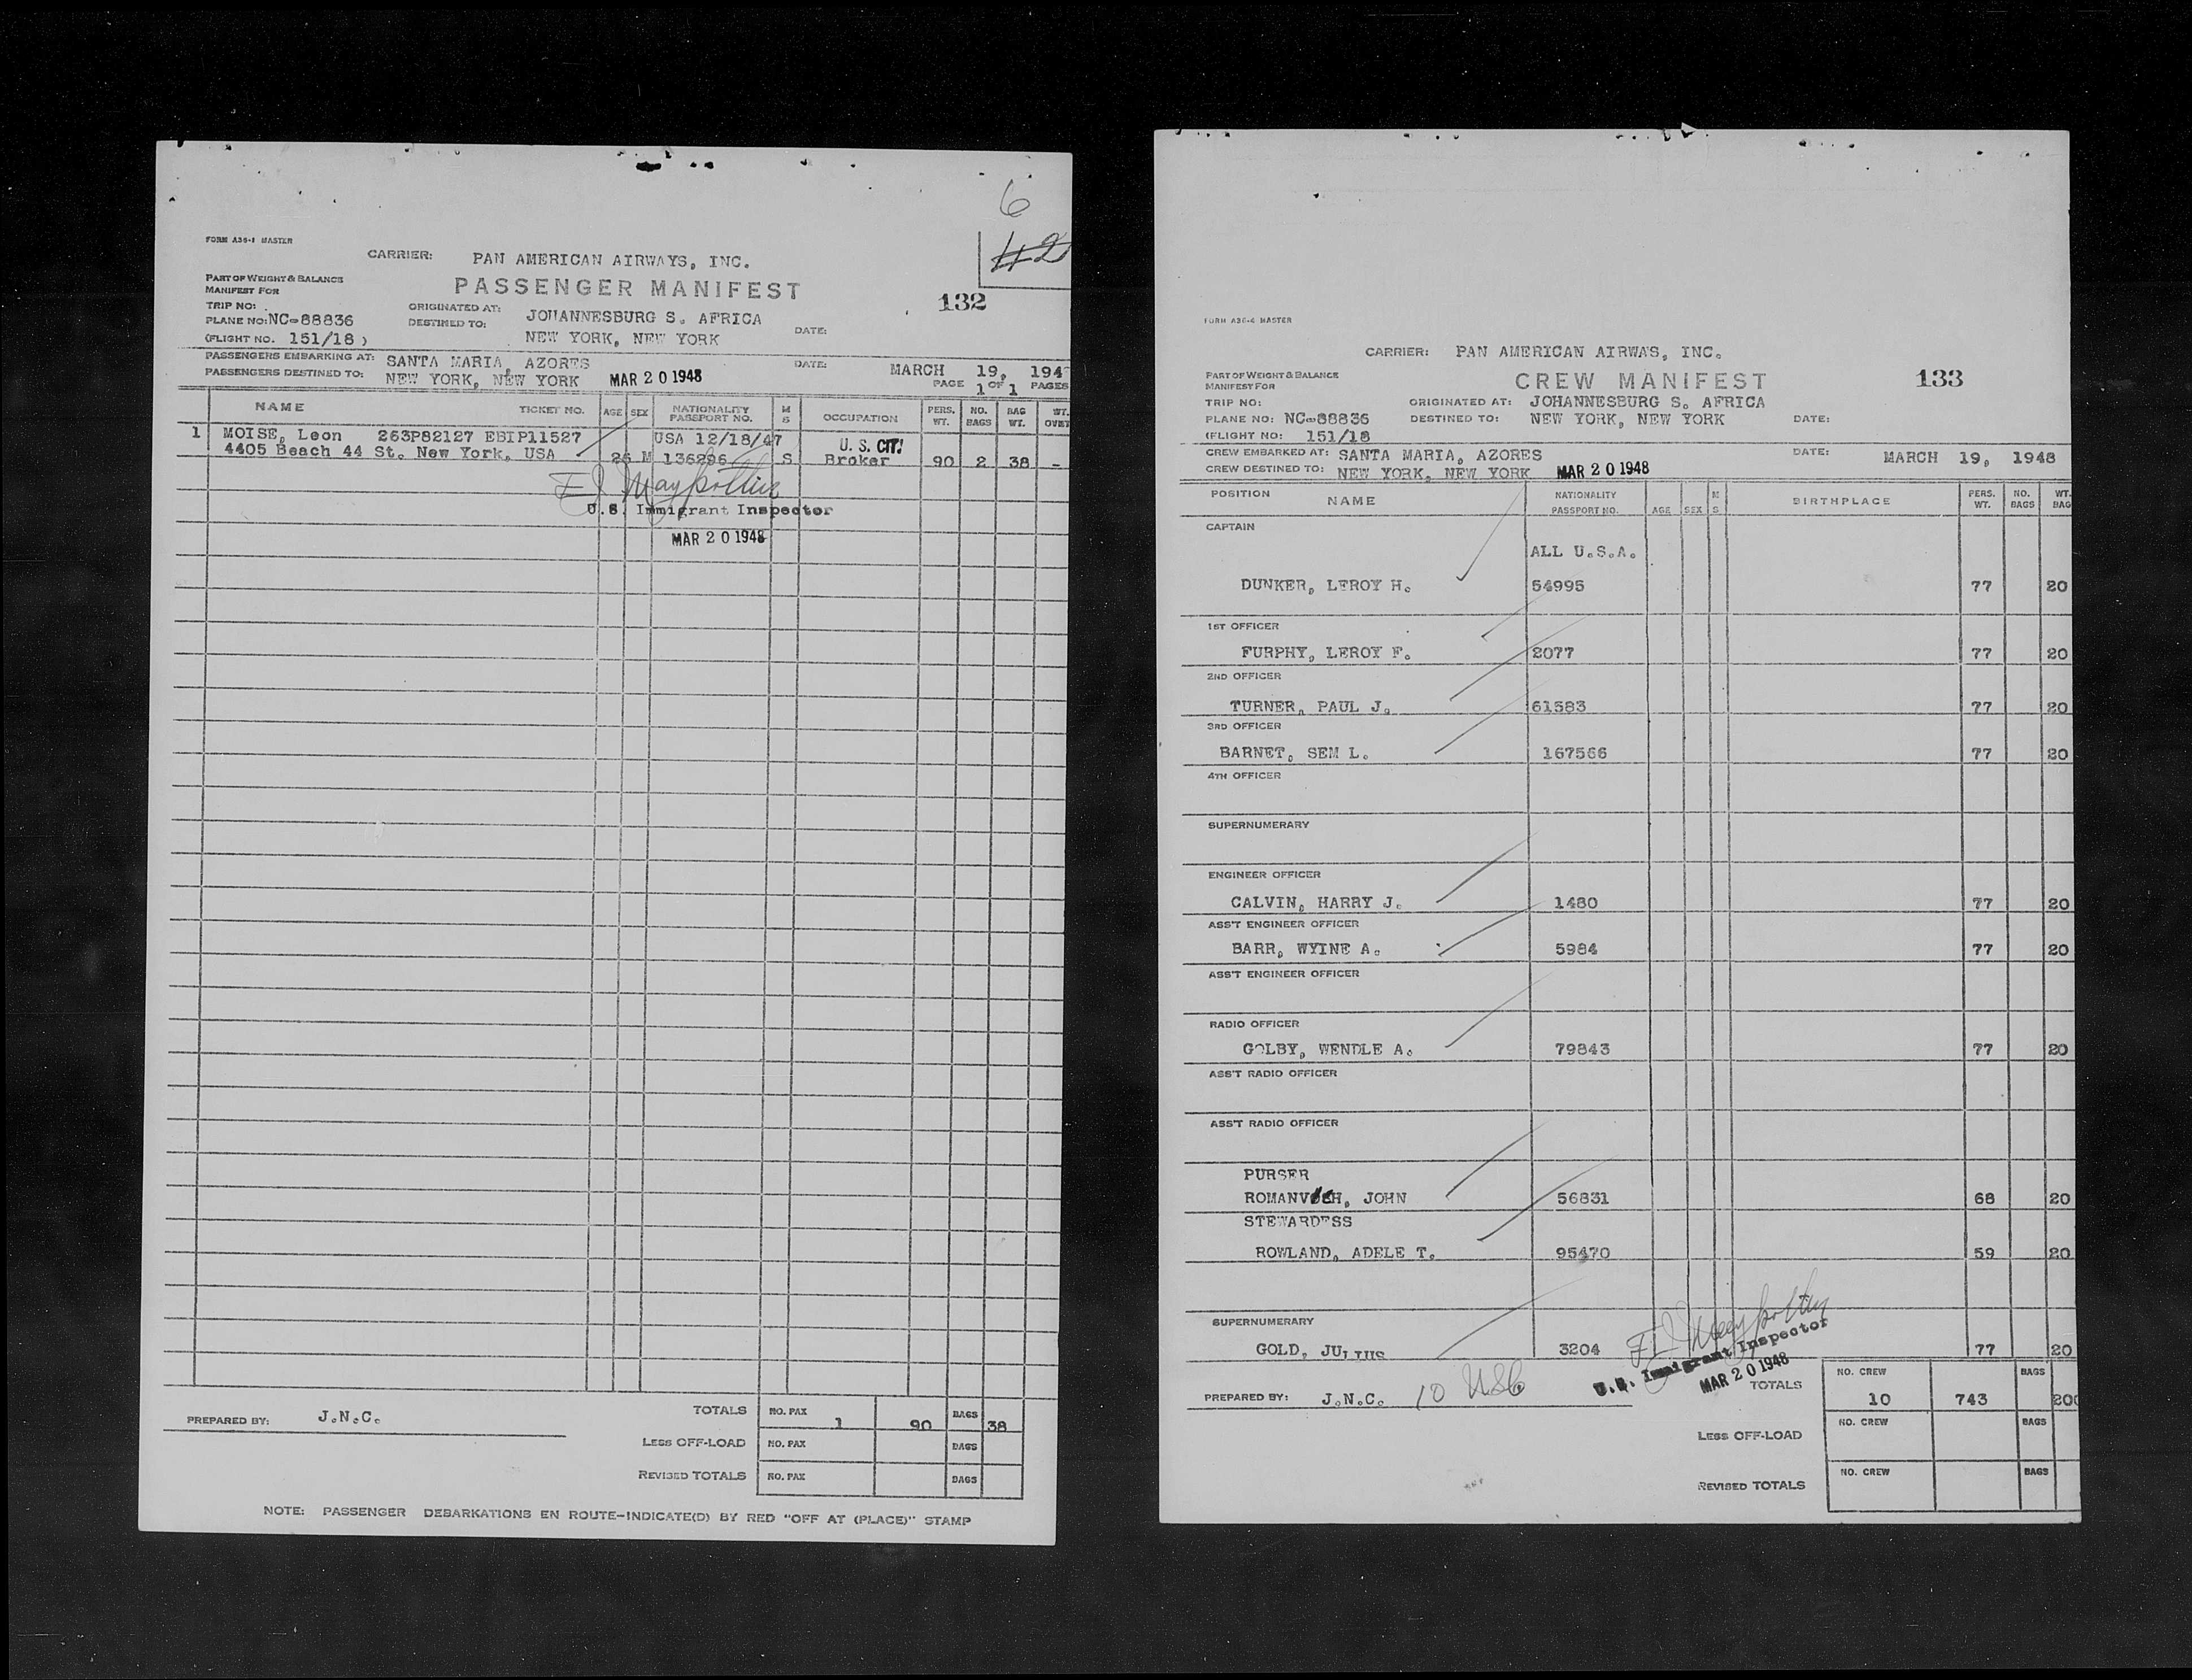 6
#2
FORM A36-1 MASTER
CARRIER: PAN AMERICAN AIRWAYS, INC.
PART OF WEIGHT & BALANCE
MANIFEST FOR
PASSENGER MANIFEST
132
TRIP NO:
ORIGINATED AT: JOHANNESBURG S. AFRICA
PLANE NO: NC-88836
DESTINED TO: NEW YORK, NEW YORK
DATE:
(FLIGHT NO. 151/18 )
PASSENGERS EMBARKING AT: SANTA MARIA, AZORES
DATE: MARCH 19, 194
PASSENGERS DESTINED TO: NEW YORK, NEW YORK MAR 20 1948
PAGE 1 OF 1 PAGES
NAME TICKET NO. AGE SEX NATIONALITY PASSPORT NO. M S OCCUPATION PERS. WT. NO. BAGS BAG WT. WT. OVER
1 MOISE, Leon 263P82127 EBIP11527 USA 12/18/47 U. S. CIT!
4405 Beach 44 St. New York, USA 26 M 136296 S Broker 90 2 38 -
U.S. Immigrant Inspector
MAR 20 1948
PREPARED BY: J.N.C.
TOTALS NO. PAX 1 90 BAGS 38
LESS OFF-LOAD NO. PAX BAGS
REVISED TOTALS NO. PAX BAGS
NOTE: PASSENGER DEBARKATIONS EN ROUTE-INDICATE(D) BY RED "OFF AT (PLACE)" STAMP
FORM A36-4 MASTER
CARRIER: PAN AMERICAN AIRWAS, INC.
PART OF WEIGHT & BALANCE
MANIFEST FOR
CREW MANIFEST
133
TRIP NO:
ORIGINATED AT: JOHANNESBURG S. AFRICA
PLANE NO: NC-88836
DESTINED TO: NEW YORK, NEW YORK
DATE:
(FLIGHT NO: 151/18
CREW EMBARKED AT: SANTA MARIA, AZORES
DATE: MARCH 19, 1948
CREW DESTINED TO: NEW YORK, NEW YORK MAR 20 1948
POSITION NAME NATIONALITY PASSPORT NO. AGE SEX M S BIRTHPLACE PERS. WT. NO. BAGS WT. BAG
CAPTAIN
ALL U.S.A.
DUNKER, LEROY H. 54995 77 20
1ST OFFICER
FURPHY, LEROY F. 2077 77 20
2ND OFFICER
TURNER, PAUL J. 61583 77 20
3RD OFFICER
BARNET, SEM L. 167566 77 20
4TH OFFICER
SUPERNUMERARY
ENGINEER OFFICER
CALVIN, HARRY J. 1480 77 20
ASS'T ENGINEER OFFICER
BARR, WYINE A. 5984 77 20
ASS'T ENGINEER OFFICER
RADIO OFFICER
GOLBY, WENDLE A. 79843 77 20
ASS'T RADIO OFFICER
ASS'T RADIO OFFICER
PURSER
JOHN 56831 68 20
STEWARDESS
ROWLAND, ADELE T. 95470 59 20
SUPERNUMERARY
GOLD, JULIUS 3204 77 20
U.S. Immigrant Inspector
MAR 20 1948
PREPARED BY: J.N.C. 10 USC
TOTALS NO. CREW 10 743 BAGS 200
LESS OFF-LOAD NO. CREW BAGS
REVISED TOTALS NO. CREW BAGS